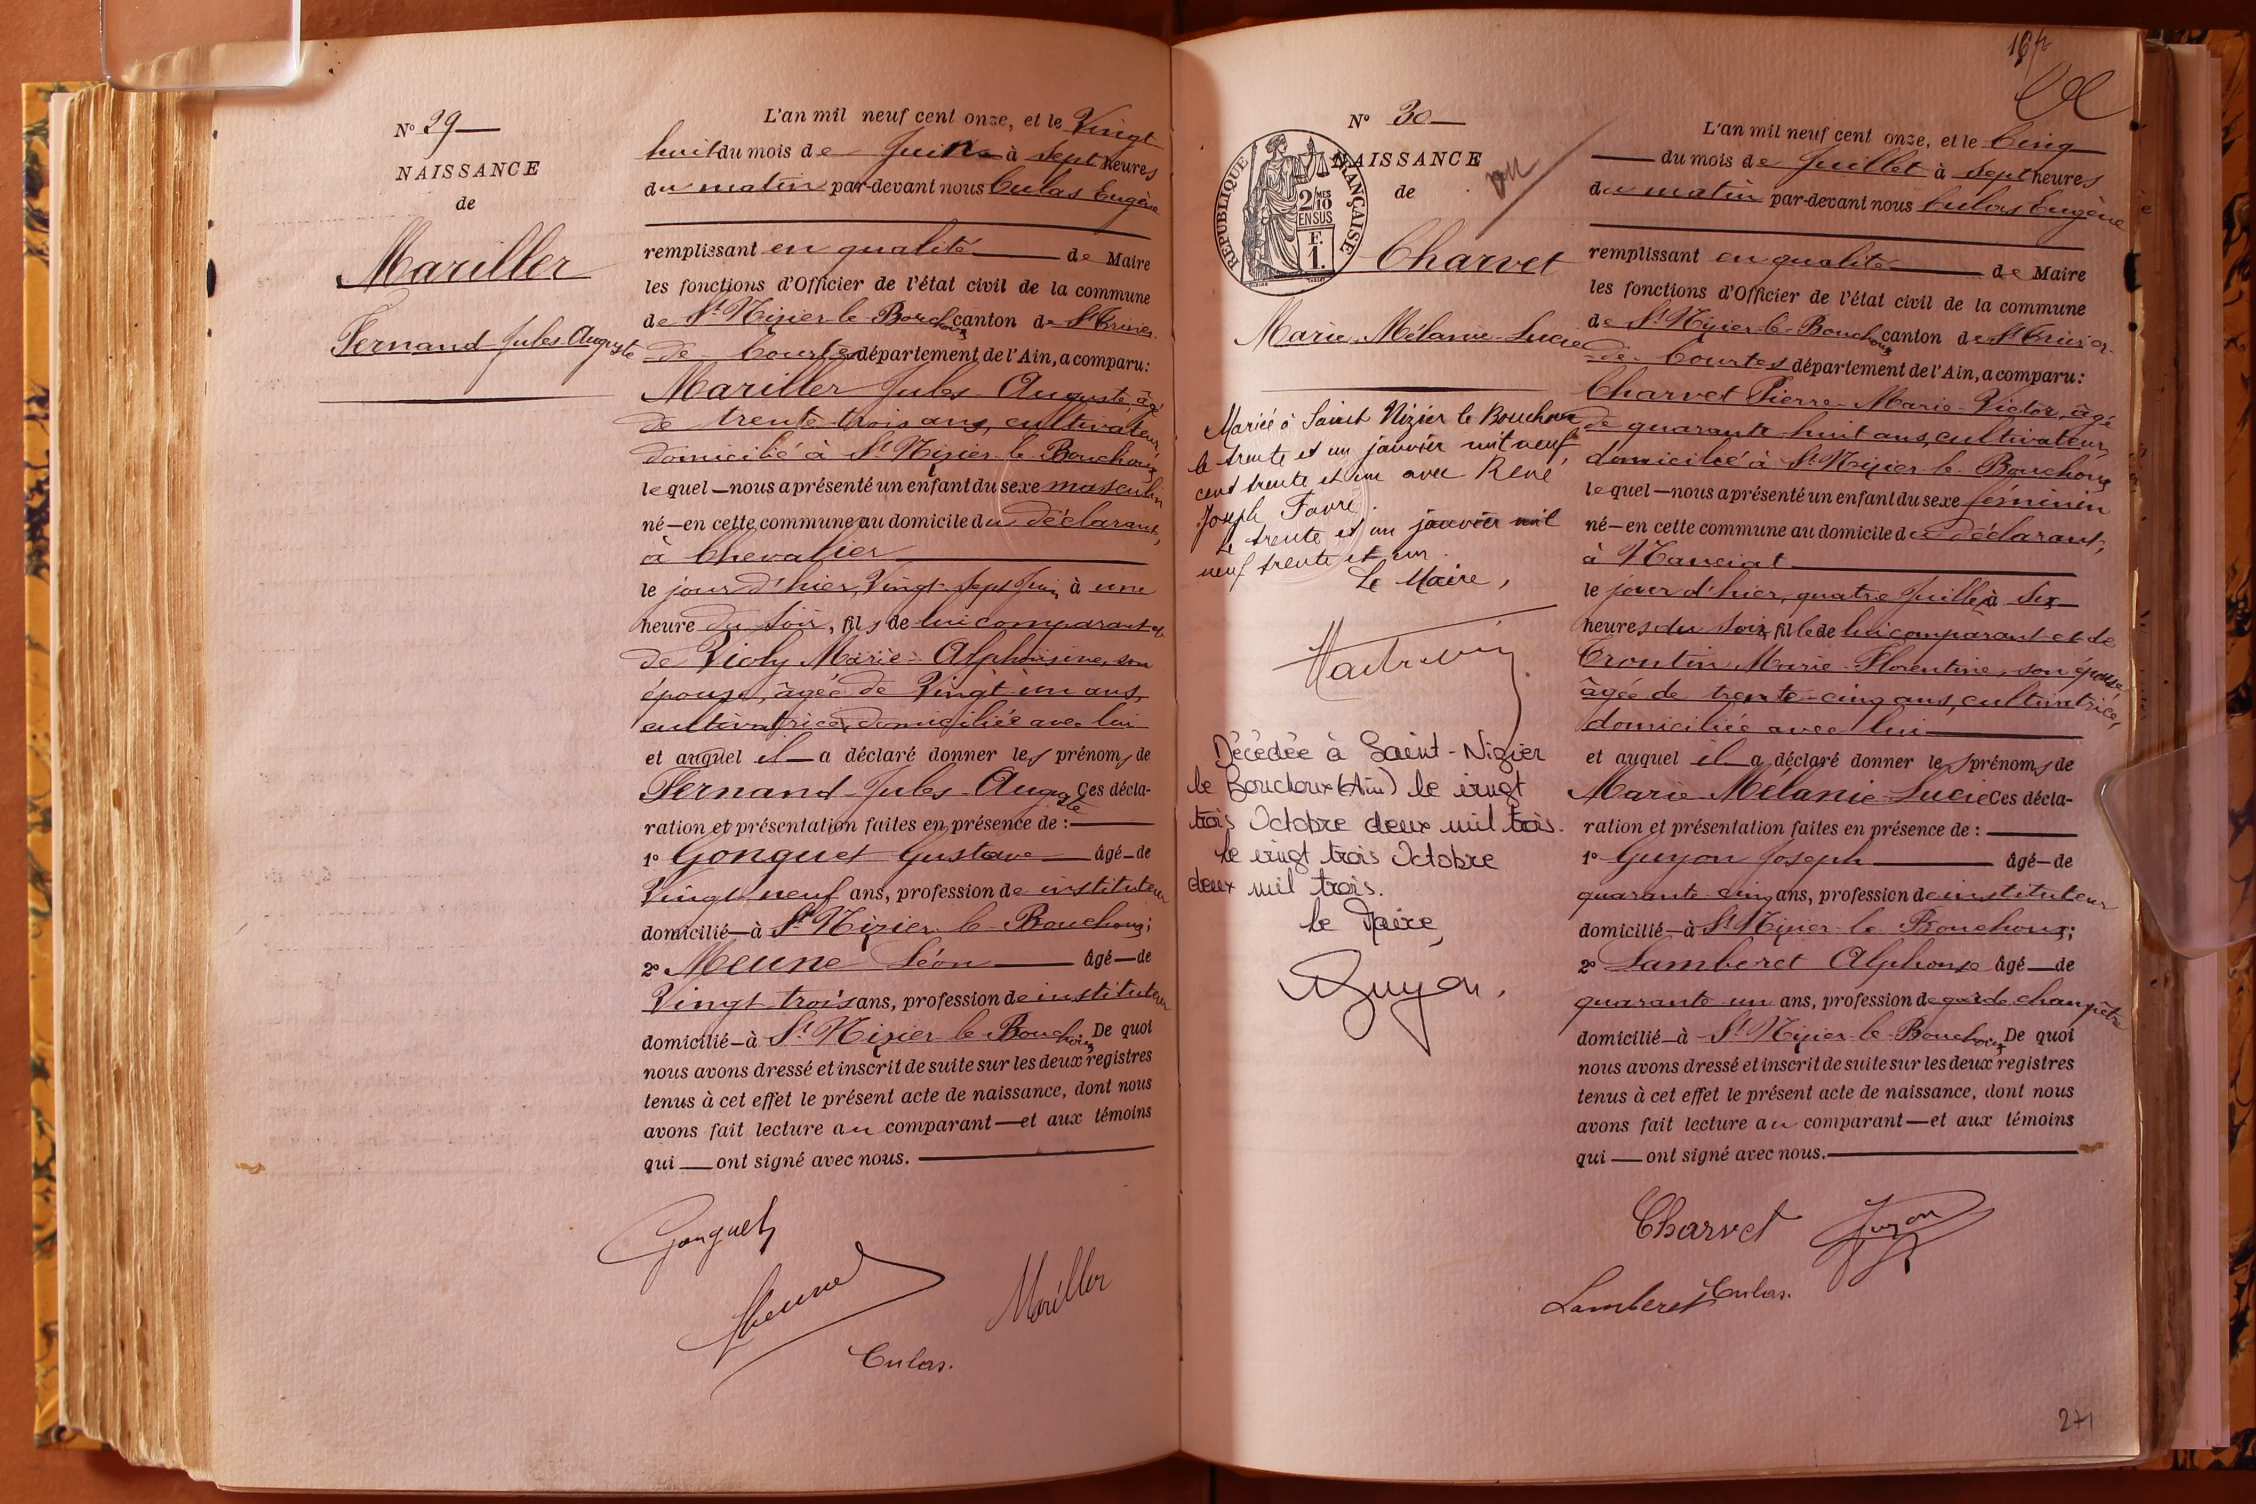 N° 29
NAISSANCE
de
Mariller
Fernand Jules Auguste
L'an mil neuf cent onze, et le Vingt
huit du mois de Juin à sept heures
du matin par-devant nous Culas Eugène
remplissant en qualité de Maire
les fonctions d'Officier de l'état civil de la commune
de St Nizier le Bouchoux canton de St Trivier
de Courtes département de l'Ain, a comparu:
Mariller Jules Auguste, âgé
de trente trois ans, cultivateur,
domicilié à St Nizier le Bouchoux,
lequel nous a présenté un enfant du sexe masculin
né en cette commune au domicile du déclarant,
à Chevalier
le jour d'hier, Vingt sept Juin à une
heure du soir, fils de lui comparant et
de Violy Marie Alphonsine, son
épouse, âgée de Vingt un ans,
cultivatrice, domiciliée avec lui
et auquel il a déclaré donner les prénoms de
Fernand Jules Auguste Ces décla-
ration et présentation faites en présence de :
1° Gonguet Gustave âgé de
Vingt neuf ans, profession de instituteur
domicilié à St Nizier le Bouchoux;
2° Meune Léon âgé de
Vingt trois ans, profession de instituteur
domicilié à St Nizier le Bouchoux De quoi
nous avons dressé et inscrit de suite sur les deux registres
tenus à cet effet le présent acte de naissance, dont nous
avons fait lecture au comparant et aux témoins
qui ont signé avec nous.
Gonguet
Meune
Mariller
Culas.
N° 30
NAISSANCE
de
vu
RÉPUBLIQUE FRANÇAISE
2/10 MES
EN SUS
F.
1.
Charvet
Marie Mélanie Lucie
Mariée à Saint Nizier le Bouchoux
le trente et un janvier mil neuf
cent trente et un avec René
Joseph Favre.
Le trente et un janvier mil
neuf trente et un.
Le Maire,
Décédée à Saint-Nizier
le Bouchoux (Ain) le vingt
trois Octobre deux mil trois.
le vingt trois Octobre
deux mil trois.
le Maire,
Guyon.
L'an mil neuf cent onze, et le Cinq
du mois de Juillet à sept heures
du matin par-devant nous Culas Eugène
remplissant en qualité de Maire
les fonctions d'Officier de l'état civil de la commune
de St Nizier le Bouchoux canton de St Trivier
de Courtes département de l'Ain, a comparu:
Charvet Pierre Marie Victor, âgé
de quarante huit ans, cultivateur,
domicilié à St Nizier le Bouchoux
lequel nous a présenté un enfant du sexe féminin
né en cette commune au domicile du déclarant,
à Nanciat
le jour d'hier, quatre Juillet à Six
heures du soir, fille de lui comparant et de
Croutin Marie Florentine, son épouse,
âgée de trente cinq ans, cultivatrice,
domiciliée avec lui
et auquel il a déclaré donner les prénoms de
Marie Mélanie Lucie Ces décla-
ration et présentation faites en présence de :
1° Guyon Joseph âgé de
quarante cinq ans, profession de instituteur
domicilié à St Nizier le Bouchoux;
2° Lamberet Alphonse âgé de
quarante un ans, profession de garde champêtre
domicilié à St Nizier le Bouchoux De quoi
nous avons dressé et inscrit de suite sur les deux registres
tenus à cet effet le présent acte de naissance, dont nous
avons fait lecture au comparant et aux témoins
qui ont signé avec nous.
Charvet
Guyon
Lamberet
Culas.
271